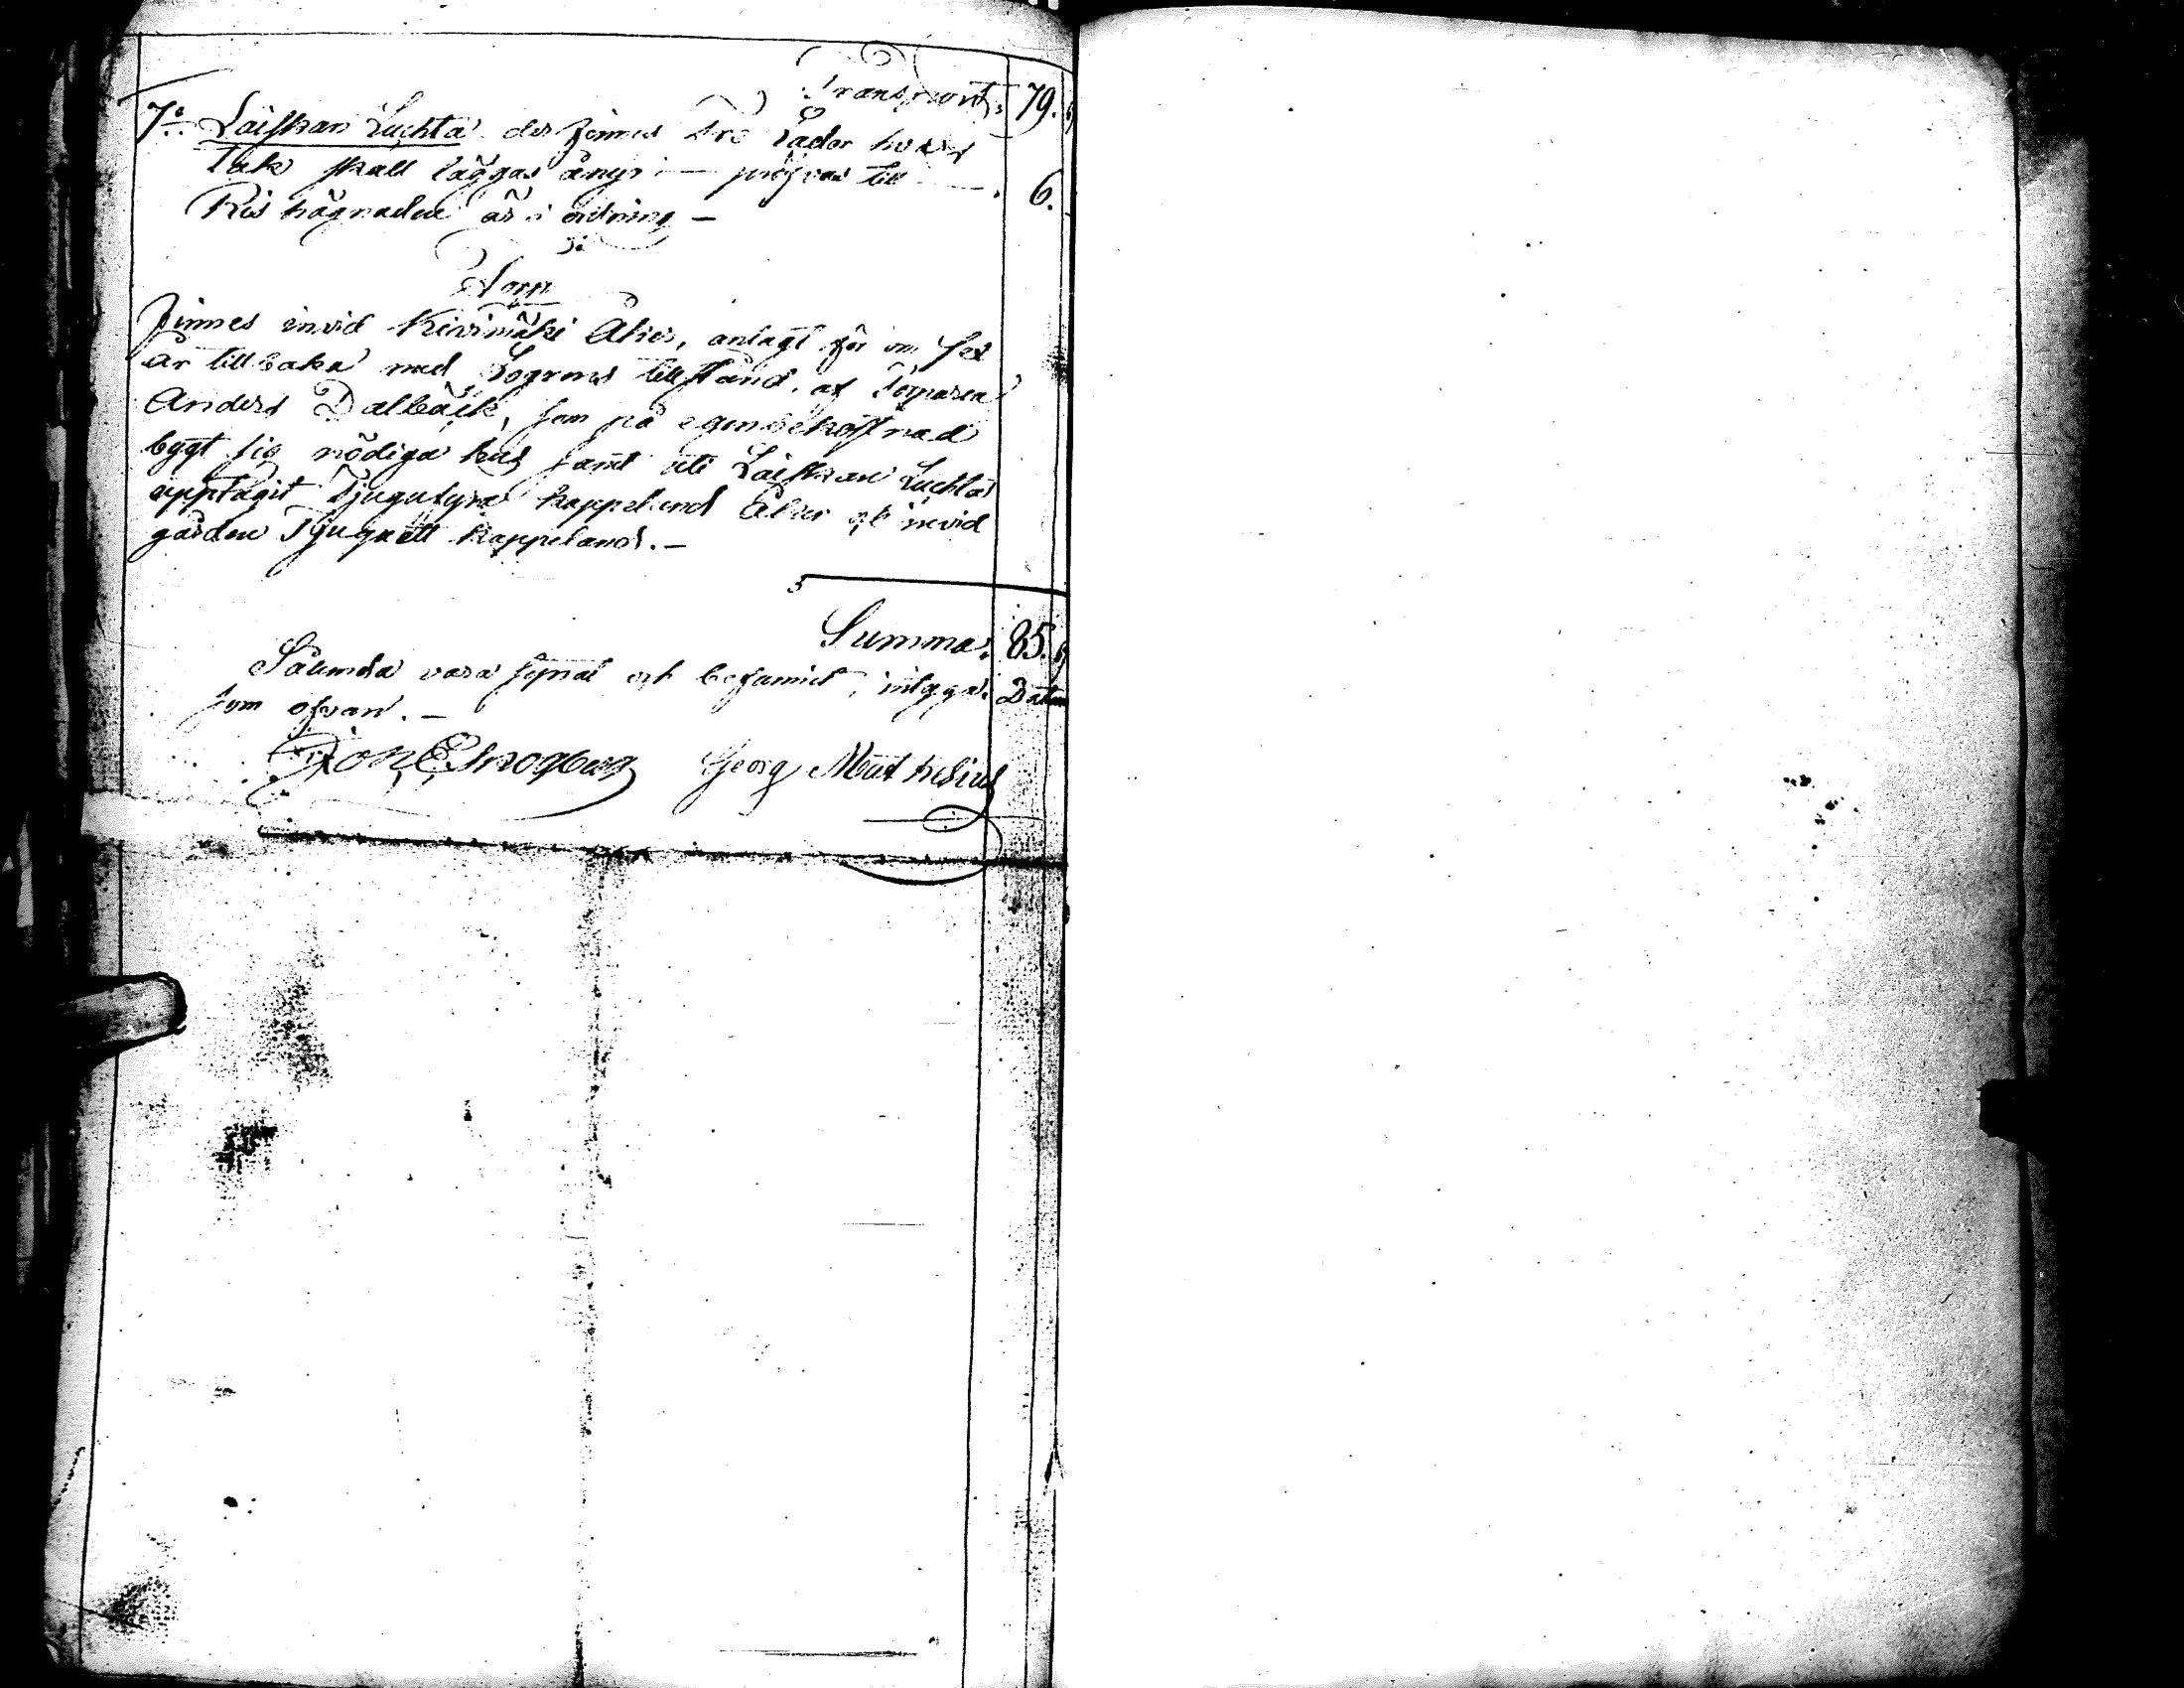 Transport. 79.
7o Laiskan Luchta der finnes tre Lador hvars
tak skall läggas å nyo; – pröfvas till . 6.
Rishägnaden är i ordning –
Torp
Finnes invid Kivimäki Åker, anlagt för om sex
år tillbaka med tillstånd, af Torparen
Anders Dalbäck, som på egen bekostnad
bygt sig nödiga hus samt uti Laiskan Luchta
upptagit Tjugufyra kappeland Åker och invid
gården Tjuguett kappeland. –
Summa. 85.
Sålunda vara synat och befunnit, intyga. Datum
som ofvan. –
Joh E Skogberg Georg Mathesius